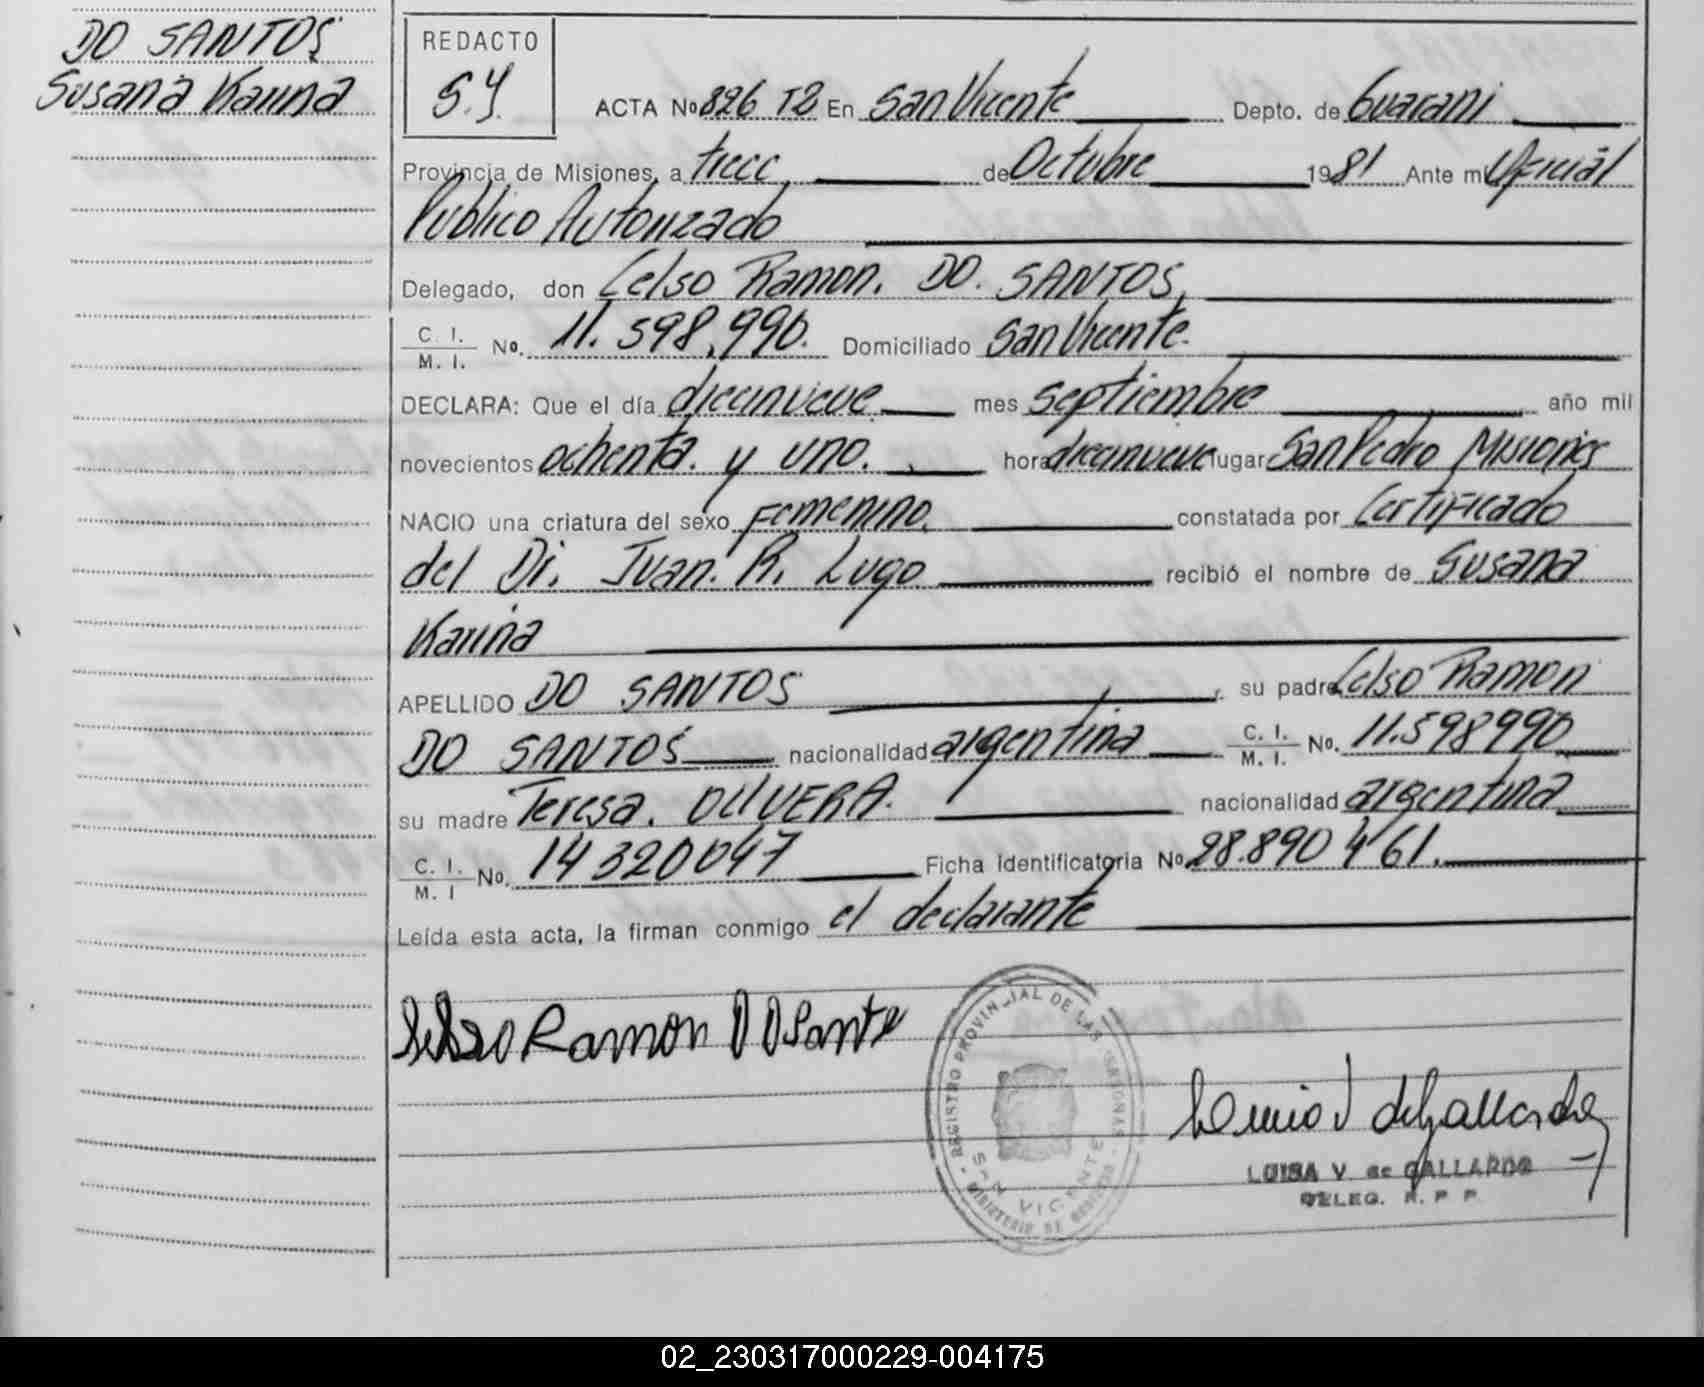 DO SANTOS
Susana Karina
REDACTO
S.Y.
ACTA No 826 T2 En San Vicente Depto. de Guarani
Provincia de Misiones, a trece de Octubre 1981 Ante mi Oficial
Publico Autorizado
Delegado, don Celso Ramon. DO. SANTOS,
C. I. / M. I. No. 11.598.990. Domiciliado San Vicente.
DECLARA: Que el día diecinueve mes septiembre año mil
novecientos ochenta. y uno. hora diecinueve lugar San Pedro Misiones
NACIO una criatura del sexo Femenino. constatada por Certificado
del Dr. Juan. R. Lugo recibió el nombre de Susana
Karina
APELLIDO DO SANTOS, su padre Celso Ramon
DO SANTOS nacionalidad argentina C. I. / M. I. No. 11.598990
su madre Teresa. OLIVERA. nacionalidad argentina
C. I. / M. I No. 14320047 Ficha Identificatoria No. 28.890 461.
Leída esta acta, la firman conmigo el declarante
Ramon
REGISTRO PROVINCIAL DE LAS PERSONAS
SAN VICENTE
MINISTERIO DE GOBIERNO
LUISA V de GALLARDO
DELEG. R. P. P.
02_230317000229-004175